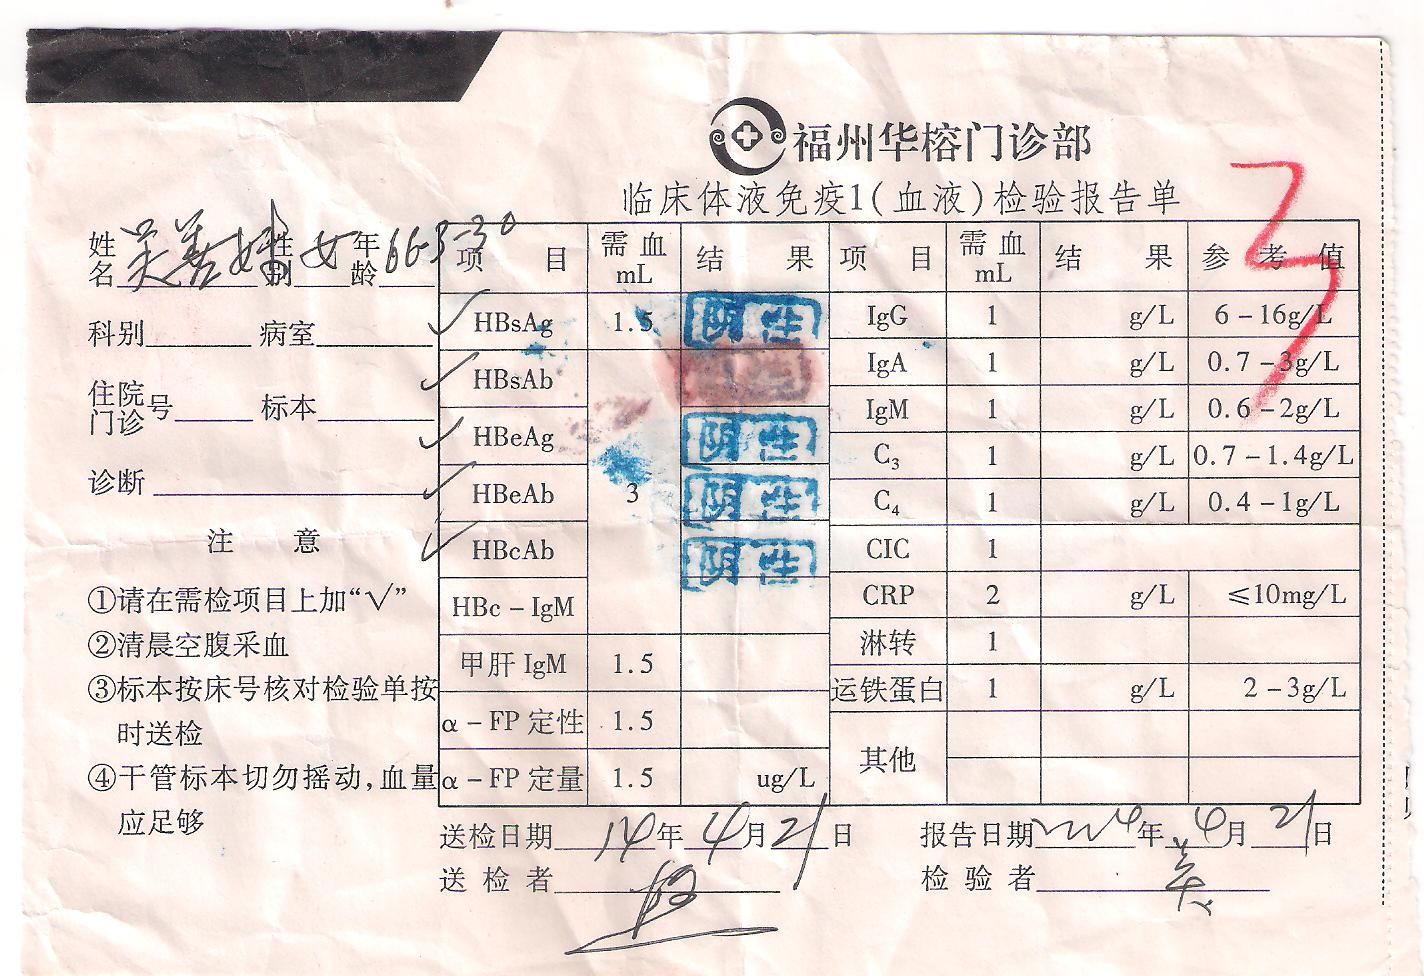 福州华榕门诊部
临床体液免疫1(血液)检验报告单
姓名 吴善 性别 女 年龄 66-3-30
科别 病室
住院门诊号 标本
诊断
注 意
①请在需检项目上加“√”
②清晨空腹采血
③标本按床号核对检验单按
时送检
④干管标本切勿摇动,血量
应足够
项 目 需血mL 结 果 项 目 需血mL 结 果 参 考 值
√ HBsAg 1.5 阴性 IgG 1 g/L 6-16g/L
√ HBsAb IgA 1 g/L 0.7-3g/L
√ HBeAg 阴性 IgM 1 g/L 0.6-2g/L
√ HBeAb 3 阴性 C₃ 1 g/L 0.7-1.4g/L
√ HBcAb 阴性 C₄ 1 g/L 0.4-1g/L
HBc-IgM CIC 1
甲肝 IgM 1.5 CRP 2 g/L ≤10mg/L
α-FP 定性 1.5 淋转 1
α-FP 定量 1.5 ug/L 运铁蛋白 1 g/L 2-3g/L
其他
送检日期 14年4月21日 报告日期 年4月21日
送 检 者 检 验 者